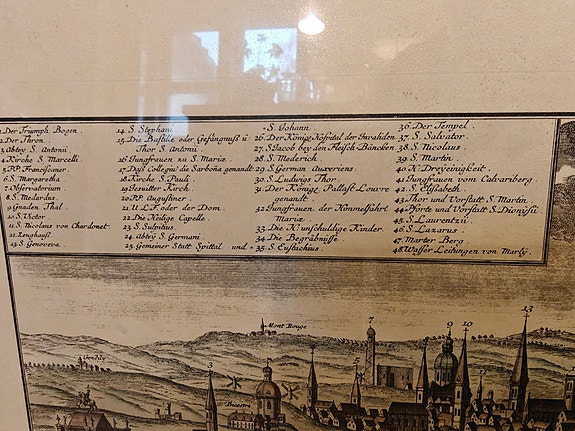 1. Der Triumph Bogen.
2. Der Thron.
3. Abtey S. Antonii
4. Kirche S. Marcelli
5. P.P. Franciscaner.
6. S. Margaretha
7. Observatorium
8. S. Medardus
9. Gnaden Thal.
10. S. Victor
11. S. Nicolaus von Chardonet
12. Zeughauß.
13. S. Genoveva
14. S. Stephani
15. Die Bastille oder Gefängnuß u:
Thor S. Antonii
16. Jungfrauen zu S. Mariæ.
17. Daß Collegiu die Sarbona genandt
18. Kirche S. Pauli
19. Jesuiter Kirch.
20. P.P. Augustiner
21. U. L. F. oder der Dom
22. Die Heilige Capelle
23. S. Sulpitius
24. Abtey S. Germani
25. Gemeiner Statt Spittail und =
= S. Johann
26. Der König. Hospital der Invaliden.
27. S. Jacob bey den Fleisch-Bäncken
28. S. Mederich
29. S. German Auxeriens:
30. S. Ludwigs Thor.
31. Der König. Pallast-Louvre
genandt
32. Jungfrauen der Himmelfahrt
Mariæ
33. Die Unschuldige Kinder
34. Die Begräbnuße
35. S. Eustachius
36. Der Tempel.
37. S. Salvator.
38. S. Nicolaus
39. S. Martin.
40. H. Dreyeinigkeit.
41. Jungfrauen vom Calvariberg
42. S. Elisabeth.
43. Thor und Vorstatt S. Martin
44. Pforte und Vorstatt S. Dionysii
45. S. Laurentii
46. S. Lazarus.
47. Marter Berg
48. Wasser Leitungen von Marly.
13
Mont Rouge
7
9
10
Gentilly
5
3